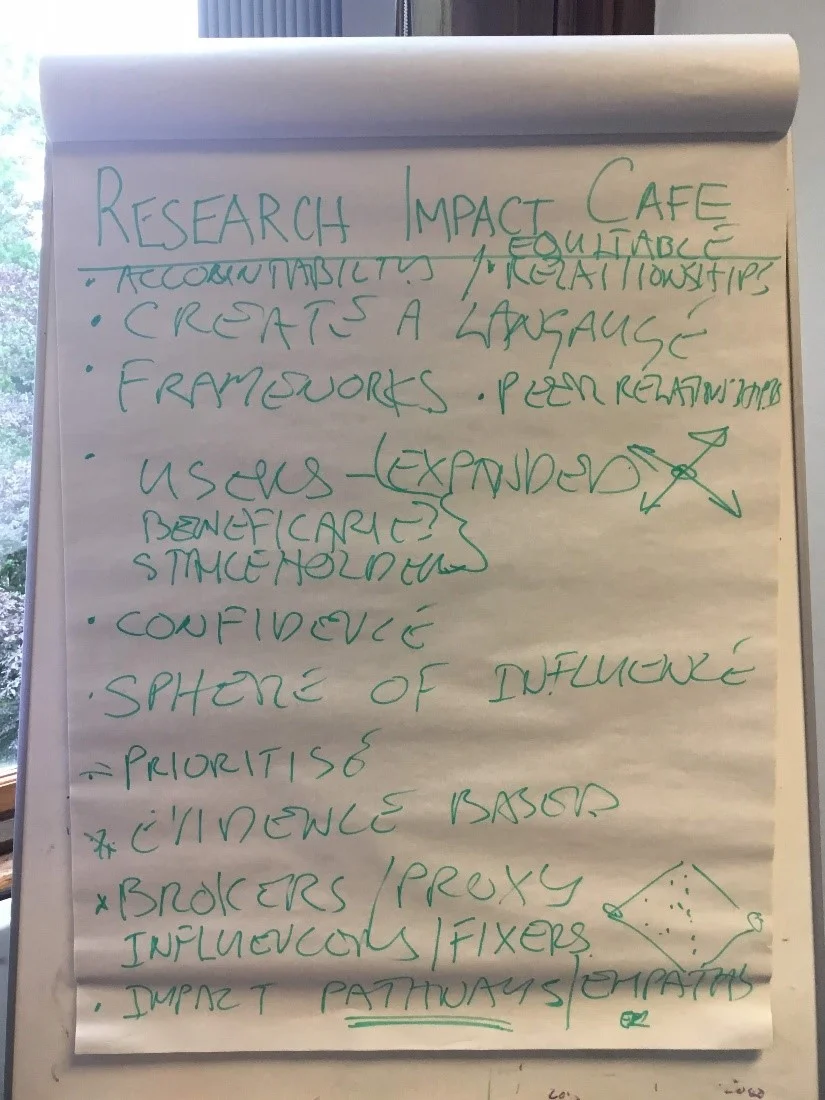 RESEARCH IMPACT CAFE
EQUITABLE
• ACCOUNTABILITY / • RELATIONSHIPS
• CREATE A LANGAUGE
• FRAMEWORKS • PEER RELATIONSHIPS
• USERS - (EXPANDED)
BENEFICARIES
STAKEHOLDERS
• CONFIDENCE
• SPHERE OF INFLUENCE
- PRIORITISE
* EVIDENCE BASED
* BROKERS / PROXY
INFLUENCERS / FIXERS
• IMPACT PATHWAYS / EMPATHS